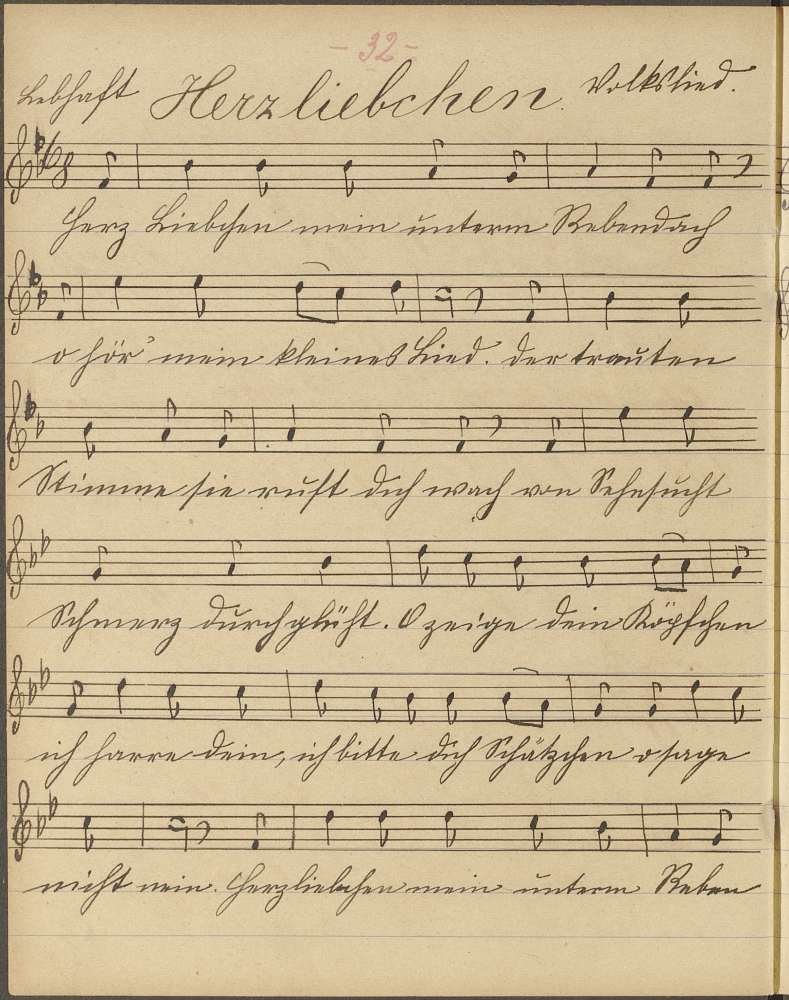 - 32 -
Lebhaft Herzliebchen. Volkslied.
Herz Liebchen mein unterm Rebendach
o hör' mein kleines Lied. der trauten
Stimme sie ruft dich wach von Sehnsucht
Schmerz durchglüht. O zeige dein Köpfchen
ich harre dein, ich bitte dich Schätzchen o sage
nicht nein. Herzliebchen mein unterm Reben